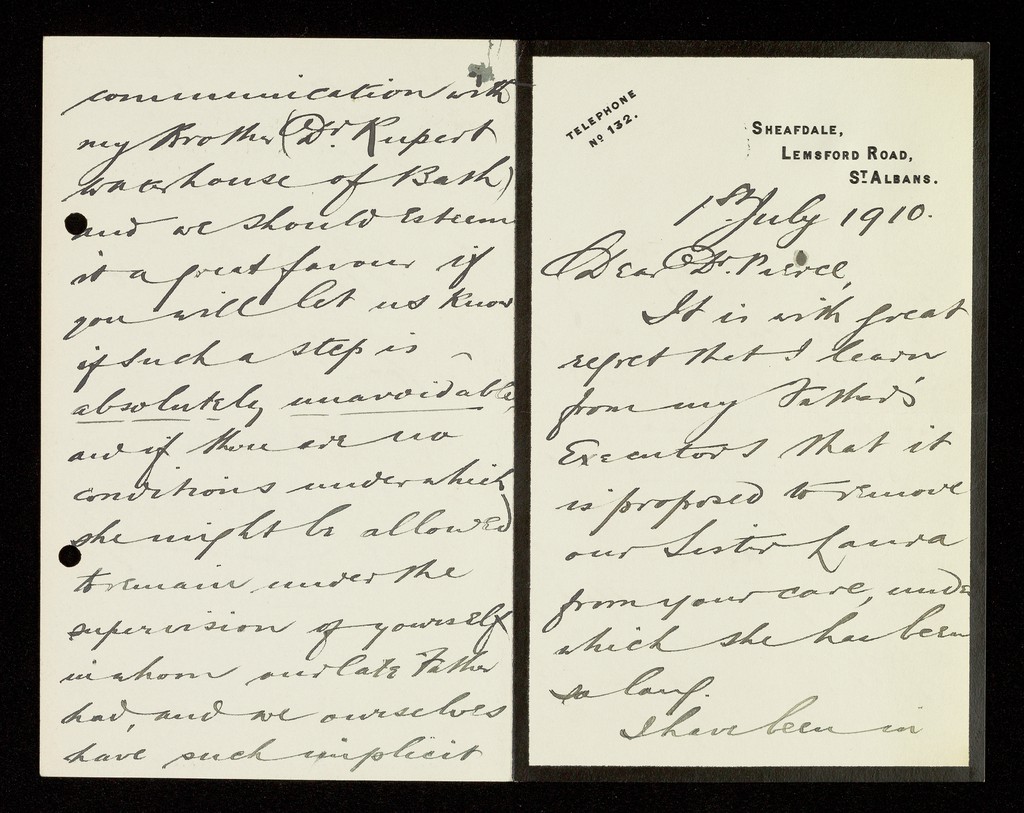 TELEPHONE
Nº 132.
SHEAFDALE,
LEMSFORD ROAD,
ST ALBANS.
1st July 1910.
Dear Dr. Pierce,
It is with great
regret that I learn
from my Father's
Executors that it
is proposed to remove
our Sister Laura
from your care, under
which she has been
so long.
I have been in
communication with
my Brother (Dr. Rupert
Waterhouse of Bath)
and we should esteem
it a great favour if
you will let us know
if such a step is
absolutely unavoidable,
and if there are no
conditions under which
she might be allowed
to remain under the
supervision of yourself
in whom our late Father
had, and we ourselves
have such implicit